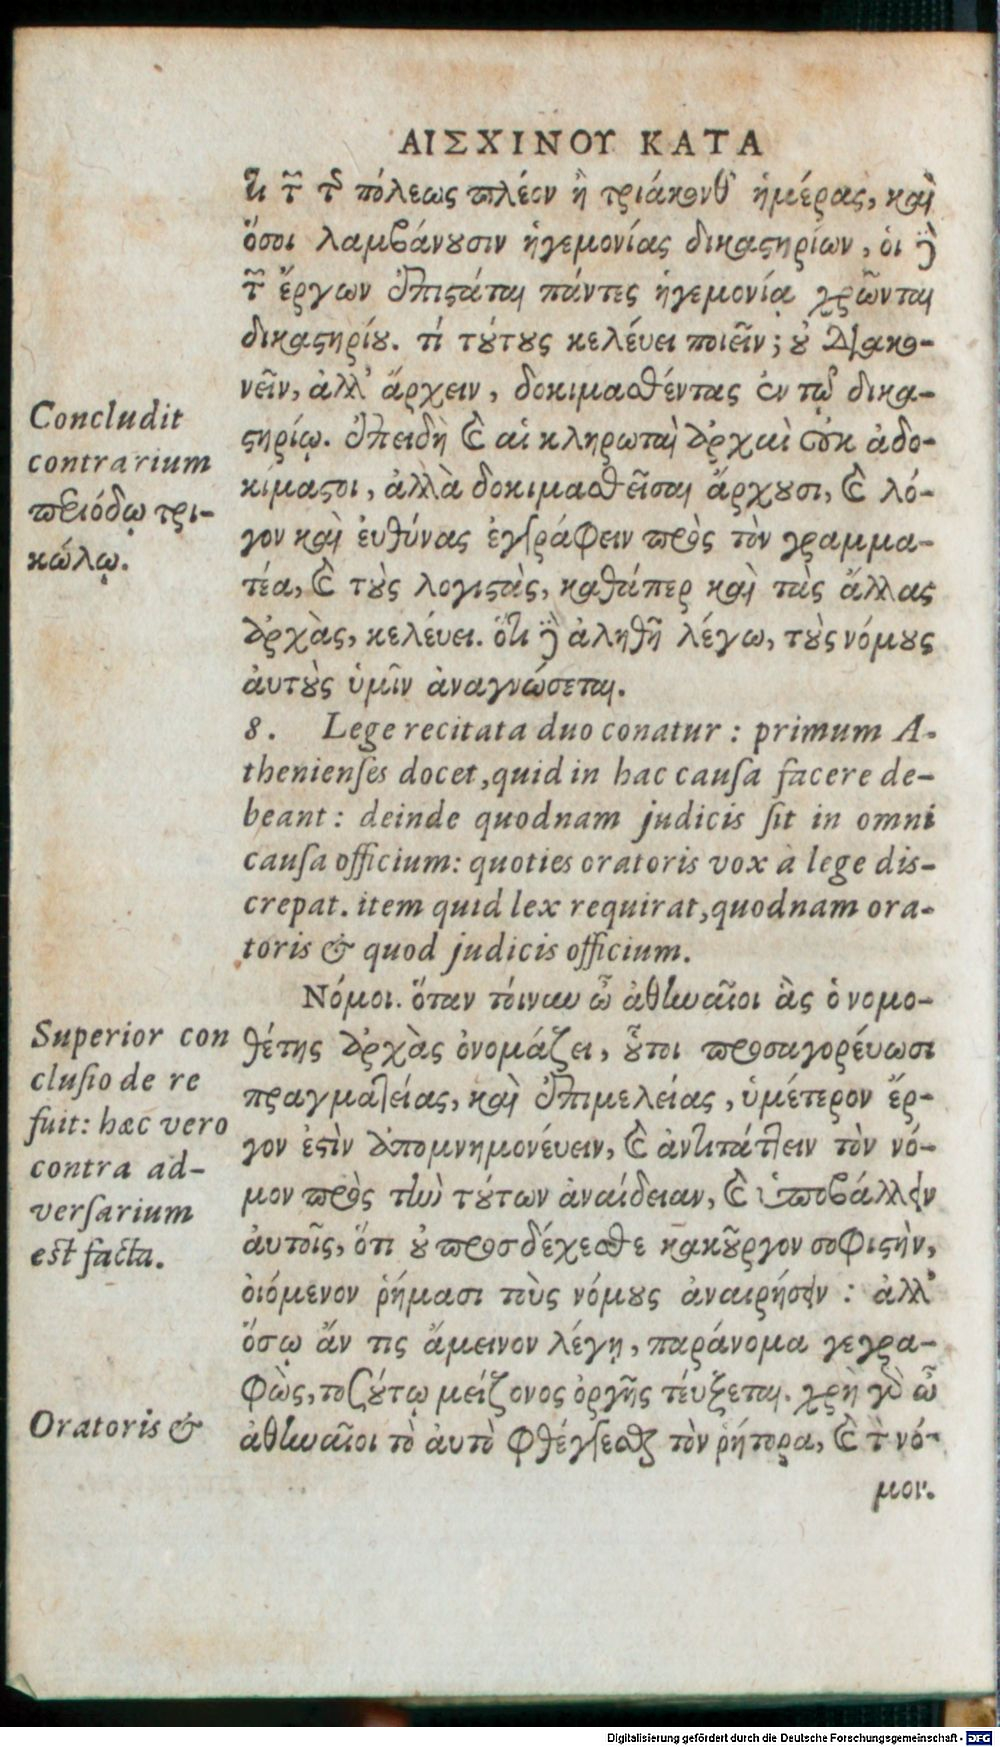 ΑΙΣΧΙΝΟΥ ΚΑΤΑ
τι τῶν τῆς πόλεως πλέον ἢ τριάκονθ' ἡμέρας, καὶ
ὅσοι λαμβάνουσιν ἡγεμονίας δικαστηρίων, οἱ δὲ
τῶν ἔργων ἐπιστάται πάντες ἡγεμονίᾳ χρῶνται
δικαστηρίου. τί τούτους κελεύει ποιεῖν; οὐ διακο-
νεῖν, ἀλλ' ἄρχειν, δοκιμασθέντας ἐν τῷ δικα-
στηρίῳ. ἐπειδὴ καὶ αἱ κληρωταὶ ἀρχαὶ οὐκ ἀδο-
κίμαστοι, ἀλλὰ δοκιμασθεῖσαι ἄρχουσι, καὶ λό-
γον καὶ ἐυθύνας ἐγγράφειν πρὸς τὸν γραμμα-
τέα, καὶ τοὺς λογιστὰς, καθάπερ καὶ τὰς ἄλλας
ἀρχὰς, κελεύει. ὅτι δὲ ἀληθῆ λέγω, τοὺς νόμους
ἀυτοὺς ὑμῖν ἀναγνώσεται.
Concludit
contrarium
περιόδῳ τρι-
κώλῳ.
8. Lege recitata duo conatur: primum A-
thenienſes docet, quid in hac cauſa facere de-
beant: deinde quodnam judicis ſit in omni
cauſa officium: quoties oratoris vox à lege dis-
crepat. item quid lex requirat, quodnam ora-
toris & quod judicis officium.
Νόμοι. ὅταν τοίνυν ὦ ἀθηναῖοι ἃς ὁ νομο-
θέτης ἀρχὰς ὀνομάζει, οὗτοι προσαγορέυωσι
πραγματείας, καὶ ἐπιμελείας, ὑμέτερον ἔρ-
γον ἐστὶν ἀπομνημονέυειν, καὶ ἀντιτάττειν τὸν νό-
μον πρὸς τὴν τούτων ἀναίδειαν, καὶ ὑποβάλλειν
ἀυτοῖς, ὅτι οὐ προσδέχεσθε κακοῦργον σοφιστὴν,
οἰόμενον ῥήμασι τοὺς νόμους ἀναιρήσειν: ἀλλ'
ὅσῳ ἄν τις ἄμεινον λέγῃ, παράνομα γεγρα-
φὼς, τοσούτῳ μείζονος ὀργῆς τέυξεται. χρὴ γὰρ ὦ
ἀθηναῖοι τὸ ἀυτὸ φθέγγεσθαι τὸν ῥήτορα, καὶ τὸν νό-
μον.
Superior con
cluſio de re
fuit: hæc vero
contra ad-
verſarium
est facta.
Oratoris &
Digitalisierung gefördert durch die Deutsche Forschungsgemeinschaft - DFG